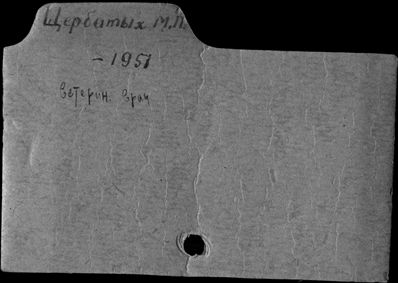 Щербатых М.П.
- 1951
ветерин. врач